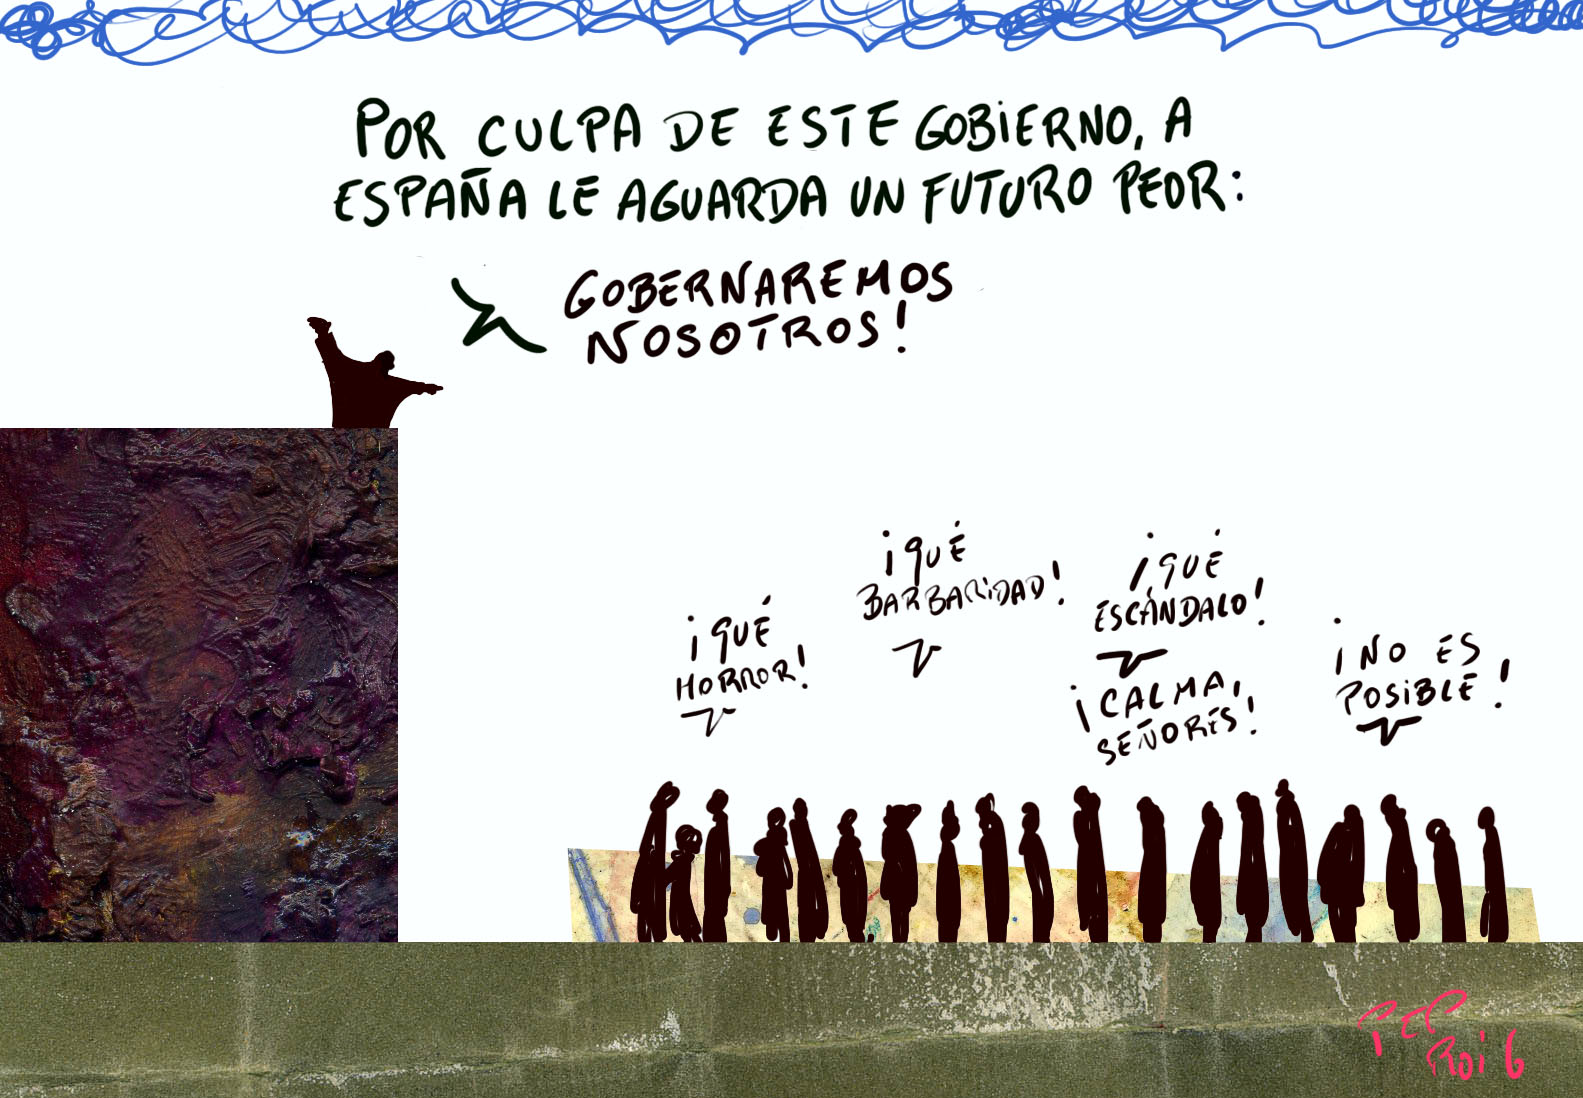 POR CULPA DE ESTE GOBIERNO, A
ESPAÑA LE AGUARDA UN FUTURO PEOR:
GOBERNAREMOS
NOSOTROS!
¡QUÉ
HORROR!
¡QUÉ
BARBARIDAD!
¡QUÉ
ESCÁNDALO!
¡CALMA,
SEÑORES!
¡NO ES
POSIBLE!
PEP
ROIG